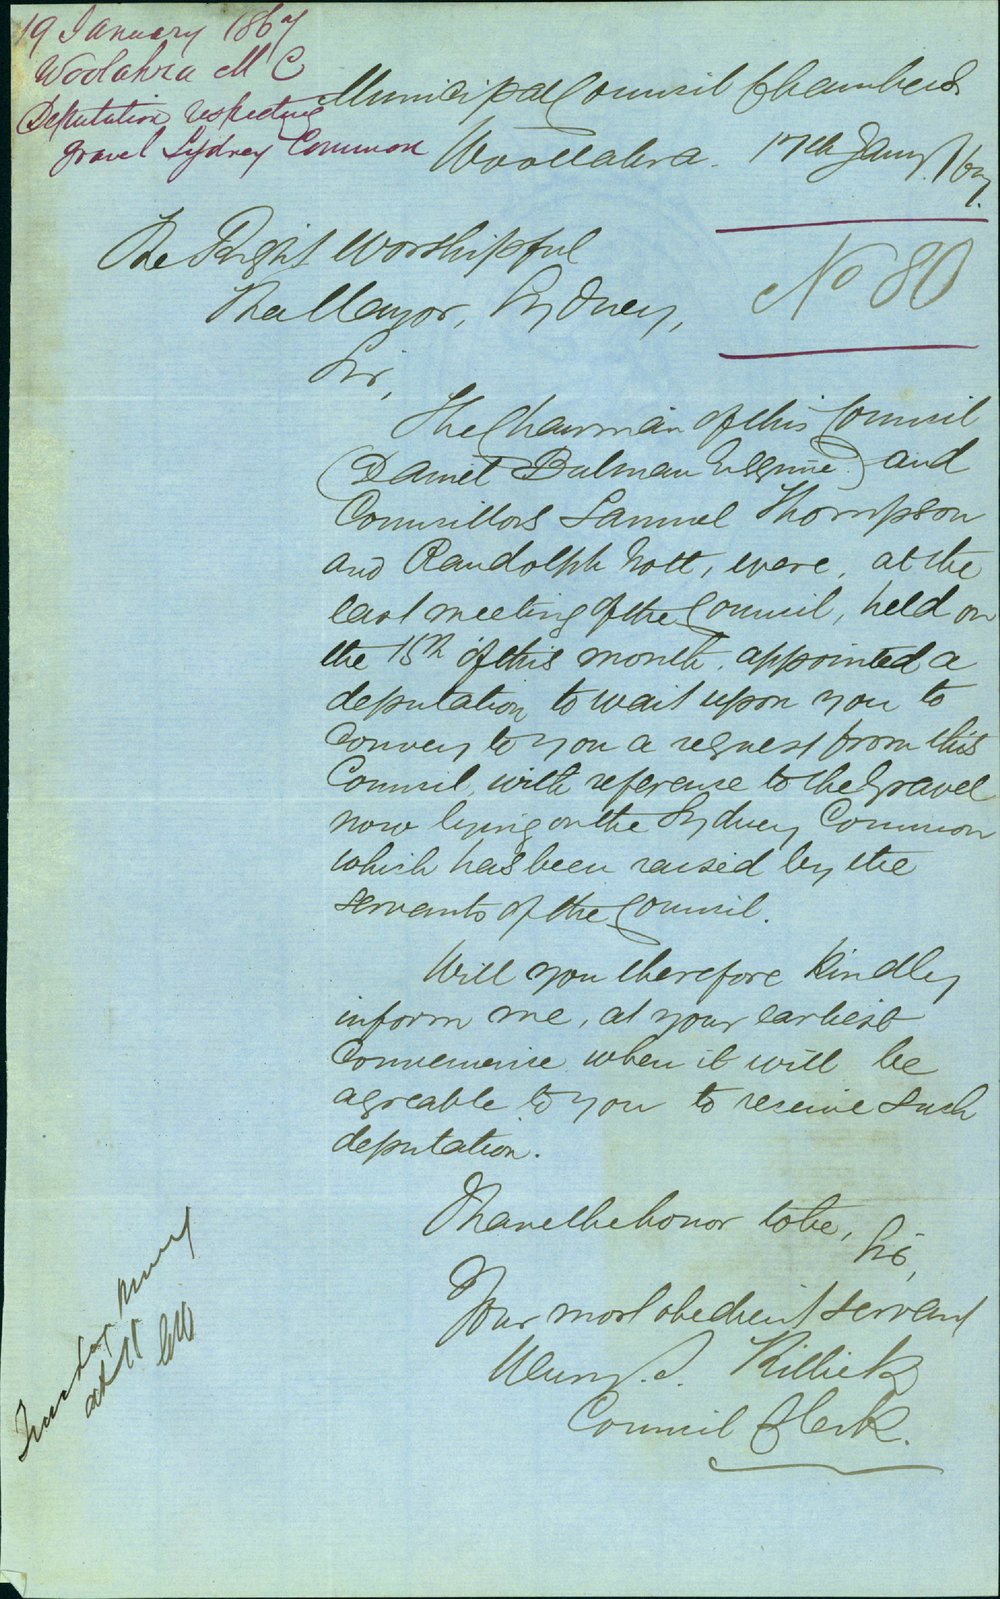 19 January 1867
Woolahra M C
Deputation respecting
gravel Sydney Common
Municipal Council Chambers
Woollahra. 17th Jany. /67.
No 80
The Right Worshipful
The Mayor, Sydney,
Sir,
The Chairman of this Council
(Daniel Bulman Esquire) and
Councillors Samuel Thompson
and Randolph Nott, were, at the
last meeting of the Council, held on
the 15th of this month, appointed a
deputation to wait upon you to
Convey to you a request from this
Council, with reference to the Gravel
now lying on the Sydney Common
which has been raised by the
servants of the Council.
Will you therefore kindly
inform me, at your earliest
Convenience when it will be
agreable to you to receive such
deputation.
I have the honor to be,
Sir,
Your most obedient servant
Henry. J. Killick
Council Clerk.
Tuesday
at 11